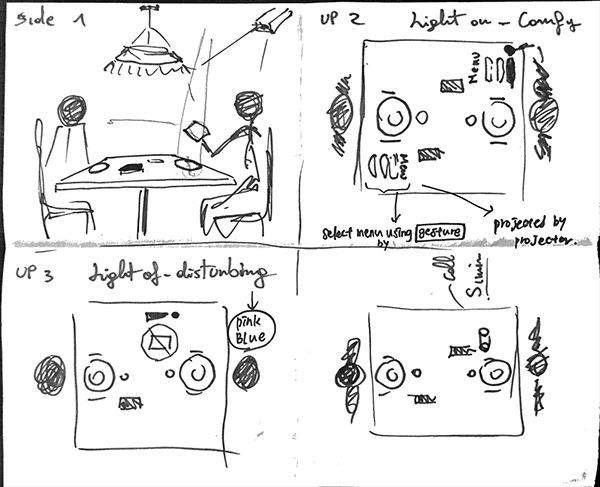 Side 1
UP 2 Light on - Comfy
Menu
Menu
select menu using
by gesture
projected by
projector.
UP 3 Light of - disturbing
pink
Blue
Call